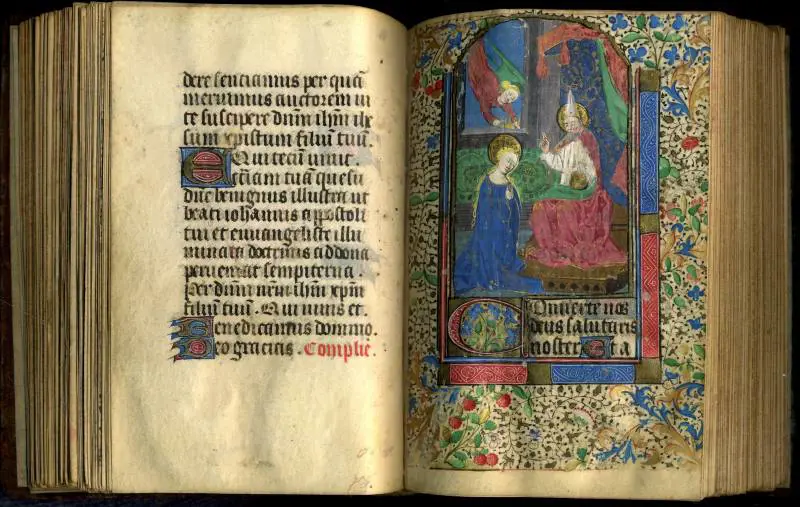 dere senciamus per quā
meruimus auctorem ui
te suscipere dnm̄ ihm̄ ihe
sum xpistum filiū tuū.
Qui tecū uiuit.
Ecc̄iam tuā quesu
dn̄e benignus illustra ut
beati iohannis appostoli
tui et euuangeliste illu
minata doctrinis ad dona
perueniat sempiterna.
Per dnm̄ nr̄m ihm̄ xpm̄
filiū tuū. Qui uiuis et.
Benedicamus domino.
Deo gracias. Complie.
Conuerte nos
deus salutaris
noster Et a